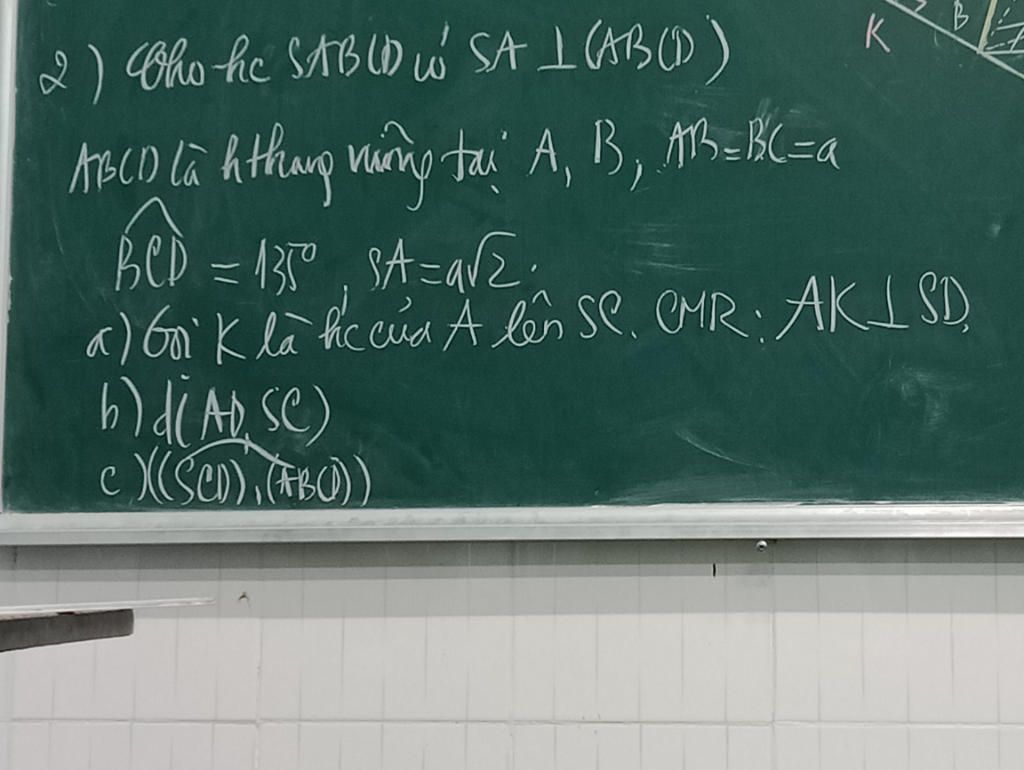 K
B
2) Cho hc SABCD có SA ⊥ (ABCD)
ABCD là hthang vuông tại A, B, AB = BC = a
BCD = 135°, SA = a√2.
a) Gọi K là hc của A lên SC. CMR: AK ⊥ SD.
b) d(AD, SC)
c) ((SCD), (ABCD))